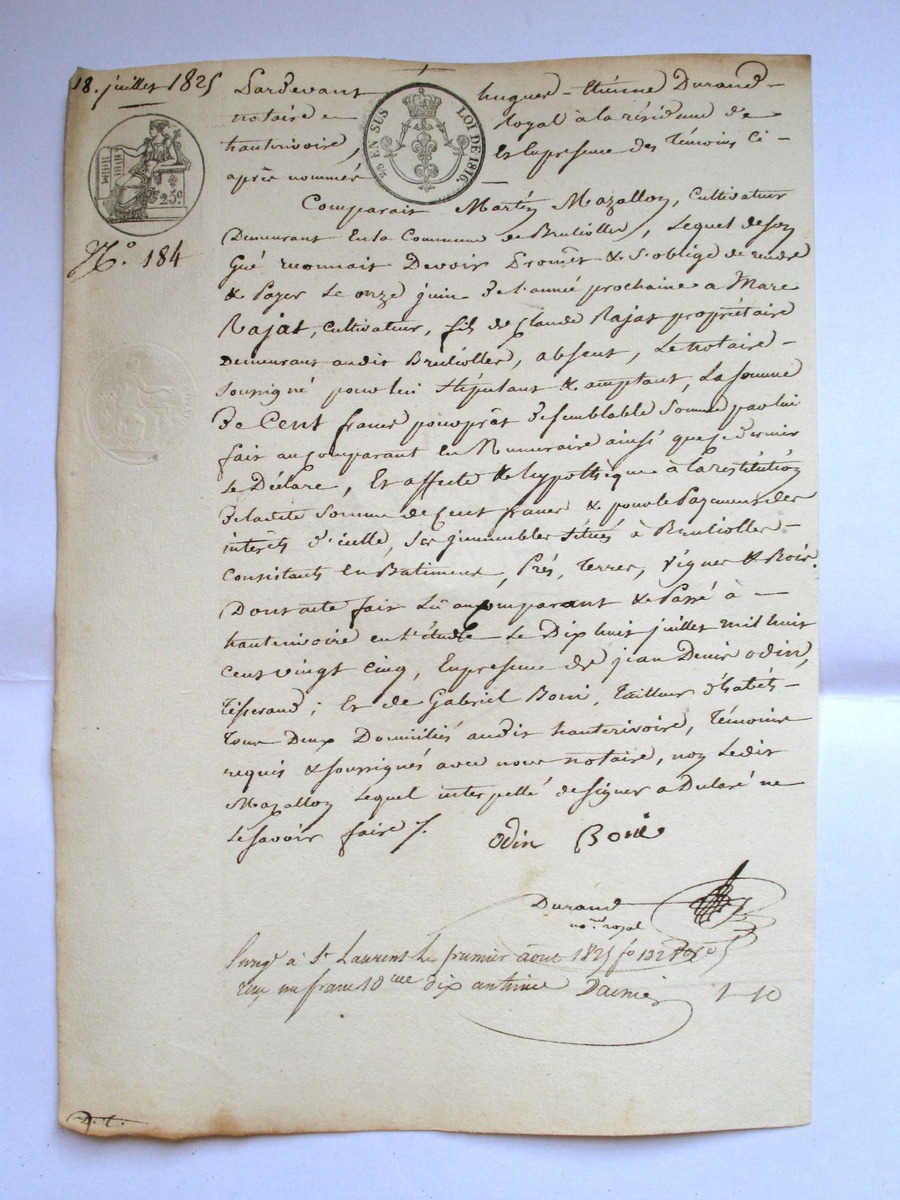 18. juillet 1825
Pardevant hugues - étienne Durand -
notaire royal à la résidence de
hauterivoire, Et En présence des Témoins Ci -
après nommés -
25 EN SUS LOI DE 1816.
25c
N.o 184
Comparait Martin Mazallon, Cultivateur
Demeurant En la Commune de Brulioller, Lequel de son
Gré reconnait Devoir Promet & S'oblige de rendre
& Payer Le onze juin de l'année prochaine a Marc
Rajat, Cultivateur, fils de Claude Rajat propriétaire
Demeurant audit Brulioller, absent, Le notaire -
Soussigné pour lui Stipulant & acceptant, La Somme
De Cent francs pour prêt de semblable Somme par lui
fait au Comparant En Numeraire ainsi que ce dernier
Le Déclare, Et affecte & hypothèque à La restitution
De ladite Somme de Cent francs & pour le Payement des
intérêts d'icelle, Ses jmmeubles Situés à Brulioller -
Consistants En Batiments, Prés, Terres, Vignes & Bois.
Dont acte fait Lu au Comparant & Passé à -
hauterivoire en l'étude Le Dix huit juillet mil huit
Cent vingt Cinq, En présence de jean Denis odin,
Tisserand; Et de Gabriel Boni, Tailleur d'habits -
Tous Deux Domiciliés audit hauterivoire, Témoins
requis & soussignés avec nous notaire, non Ledit
Mazallon Lequel interpellé de signer a Déclaré ne
Le savoir faire /.
Odin Boni
Durand
no.re royal
Enreg.é à St Laurent Le premier aout 1825 fo 132
reçu un franc 10.me dix centimes Dacnier 1-10